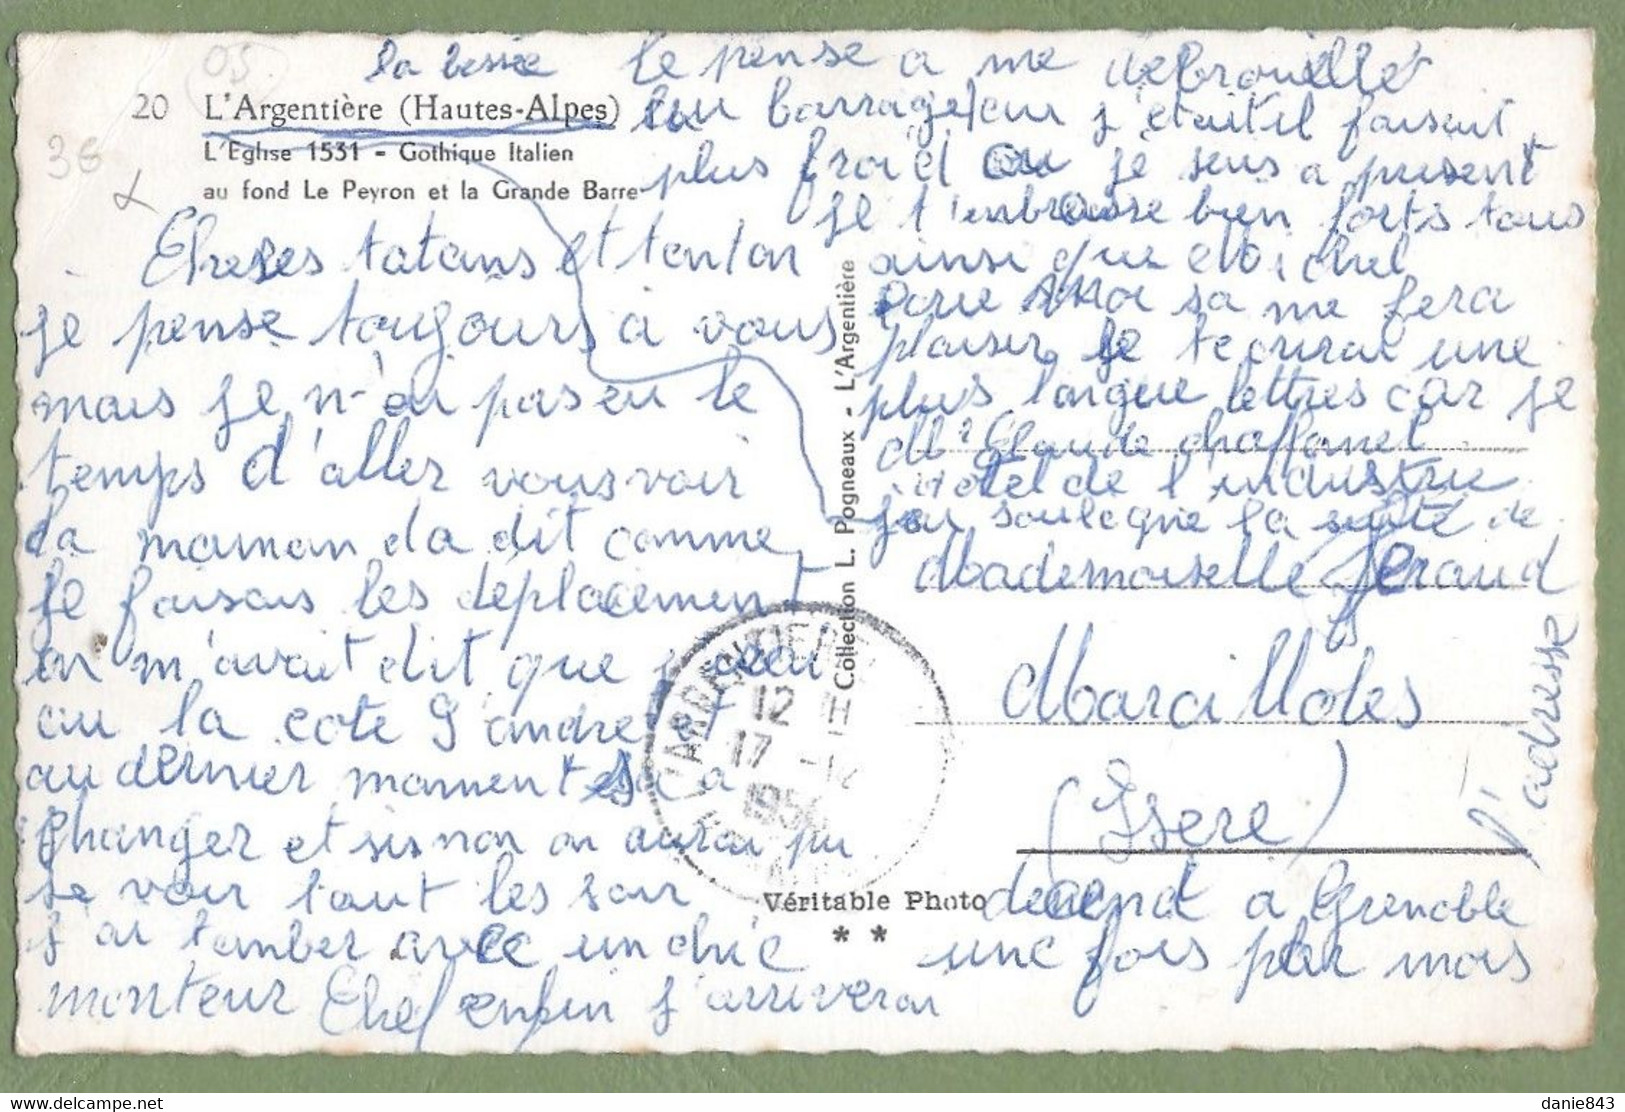 05
la bessée
20 L'Argentière (Hautes-Alpes)
L'Eglise 1531 - Gothique Italien
au fond Le Peyron et la Grande Barre
36
tatans et tonton
je pense toujours à vous
mais je n'ai pas eu le
temps d'aller vous voir
la maman la dit comme
je faisais les déplacement
on m'avait dit que
au la cote S'andre et
au dernier moment sa a
changer et sisnon on aurai pu
se voir tout les soir
j'ai tomber avec un chic
monteur Chef enfin j'arriverai
le pense a me debrouillé
au barrage
plus froid ou je suis a present
je t'enbrasse bien forts tous
ainsi que
sa me fera
plaisir je tecrirai une
plus longue lettres car je
Mr Claude chaffanel
Hotel de l'industrie
j'ai souligne la suite de
l'adresse
Mademoiselle Geraud
Marailloles
(Isere)
decend a Grenoble
une fois par mois
Collection L. Pogneaux - L'Argentière
L'ARGENTIERE
12 H
17 -12
1956
Véritable Photo
* *
danie843